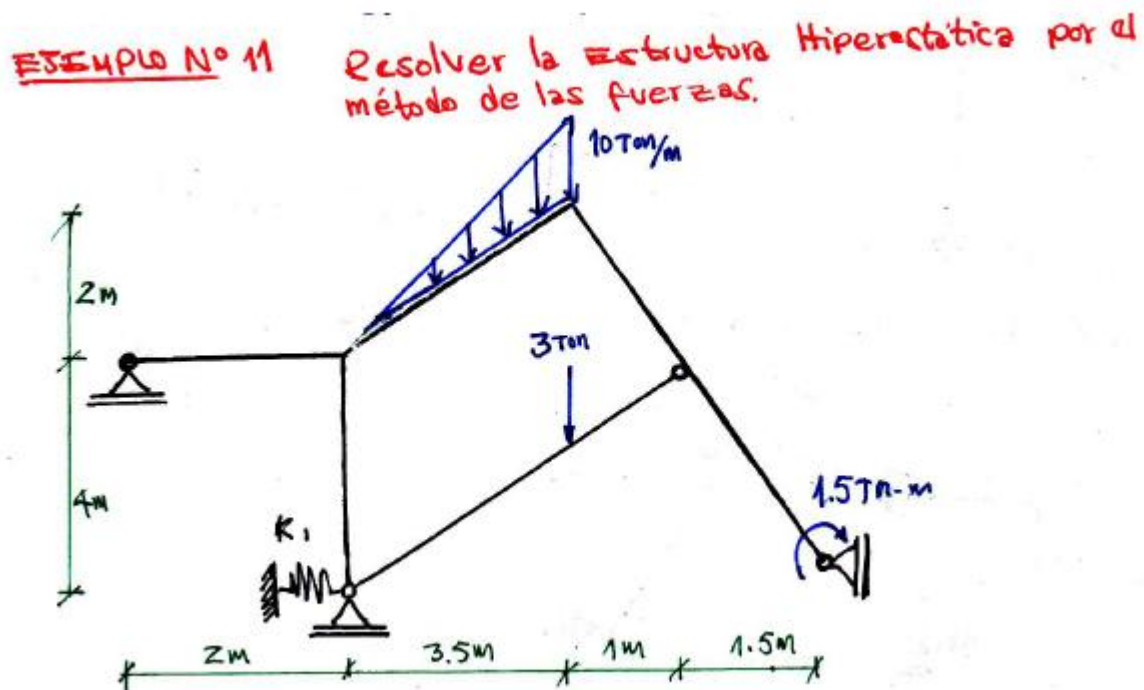 EJEMPLO Nº 11 Resolver la Estructura Hiperestática por el
método de las fuerzas.
10 Ton/m
2m
3Ton
4m
1.5Tn-m
K1
2m 3.5m 1m 1.5m